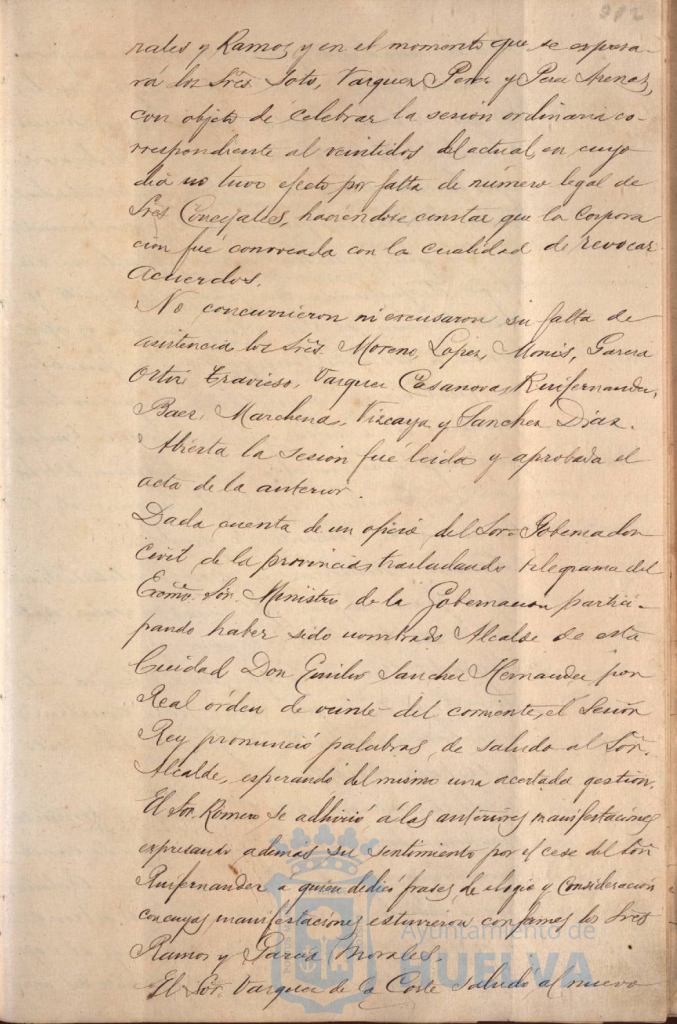 212
rales y Ramos y en el momento que se expresa-
rá los Sres. Soto, Vazquez Perez y Perez Arenas,
con objeto de celebrar la sesión ordinaria co-
rrespondiente al veintidos del actual, en cuyo
dia no tuvo efecto por falta de número legal de
Sres Concejales, haciéndose constar que la Corpora
ción fué convocada con la cualidad de revocar
Acuerdos.
No concurrieron ni excusaron su falta de
asistencia los Sres. Moreno, Lopez, Monis, Garcia
Ortiz, Travieso, Vazquez Casanova, Ruifernandez,
Baez, Marchena, Vizcaya y Sanchez Diaz.
Abierta la sesión fué leida y aprobada el
acta de la anterior.
Dada cuenta de un oficio del Sor. Gobernador
Civil de la provincia, trasladando telegrama del
Excmo. Sor. Ministro de la Gobernacion partici-
pando haber sido nombrado Alcalde de esta
Ciudad Don Emilio Sanchez Hernandez por
Real órden de veinte del corriente, el Señor
Rey pronunció palabras de saludo al Sor.
Alcalde, esperando del mismo una acertada gestión.
El Sor. Romero se adhirió á las anteriores manifestaciones
expresando ademas su sentimiento por el cese del Sor
Ruifernandez á quien dedicó frases de elogio y consideración
con cuyas manifestaciones estuvieron conformes los Sres
Ramos y Garcia Morales.
El Sor. Vazquez de la Corte saludó al nuevo
Ayuntamiento de
HUELVA